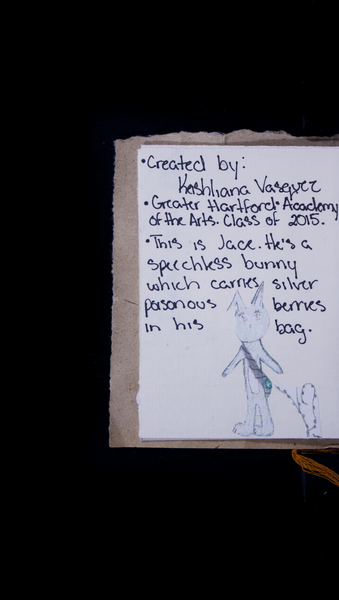 •Created by:
Keshliana Vasquez
•Greater Hartford•Academy
of the Arts. Class of 2015.
•This is Jace. He's a
speechless bunny
which carries silver
poisonous berries
in his bag.